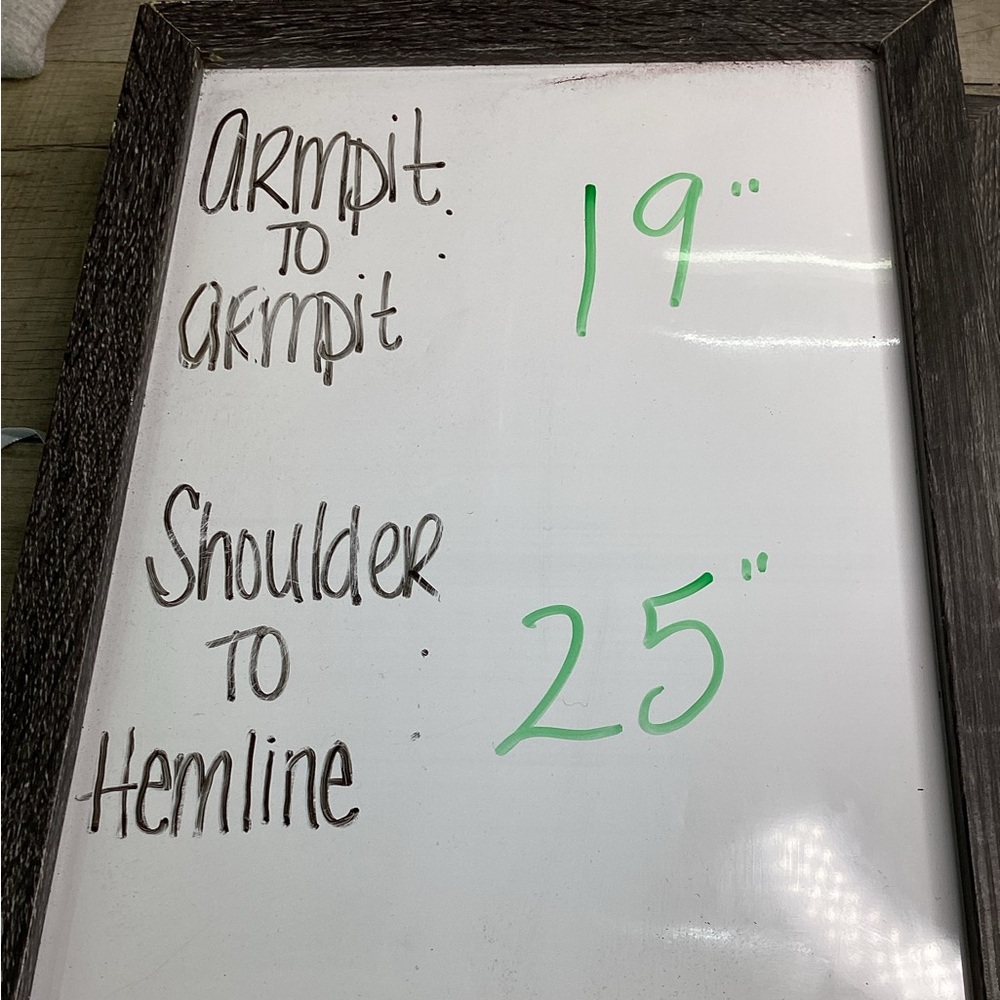 armpit
TO : 19"
armpit
Shoulder
TO : 25"
Hemline